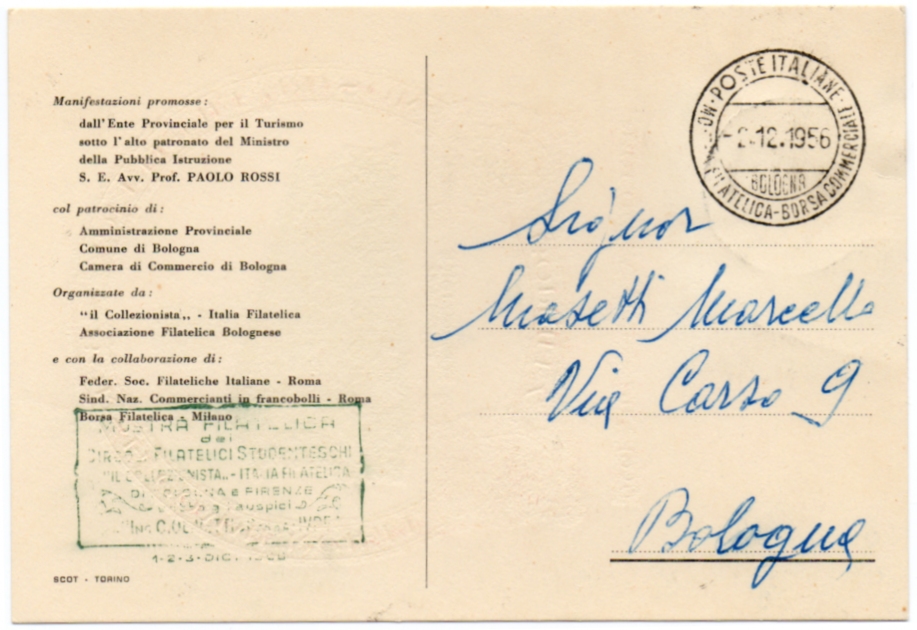 Manifestazioni promosse :
dall'Ente Provinciale per il Turismo
sotto l'alto patronato del Ministro
della Pubblica Istruzione
S. E. Avv. Prof. PAOLO ROSSI
col patrocinio di :
Amministrazione Provinciale
Comune di Bologna
Camera di Commercio di Bologna
Organizzate da :
"il Collezionista„ - Italia Filatelica
Associazione Filatelica Bolognese
e con la collaborazione di :
Feder. Soc. Filateliche Italiane - Roma
Sind. Naz. Commercianti in francobolli - Roma
Borsa Filatelica - Milano
MOSTRA FILATELICA
dei
CIRCOLI FILATELICI STUDENTESCHI
"IL COLLEZIONISTA„ - ITALIA FILATELICA
DI BOLOGNA e FIRENZE
auspici
1-2-3-DIC.
SCOT - TORINO
POSTE ITALIANE
-2.12.1956
BOLOGNA
FILATELICA - BORSA COMMERCIALE
Signor
Masetti Marcello
Via Carso 9
Bologna